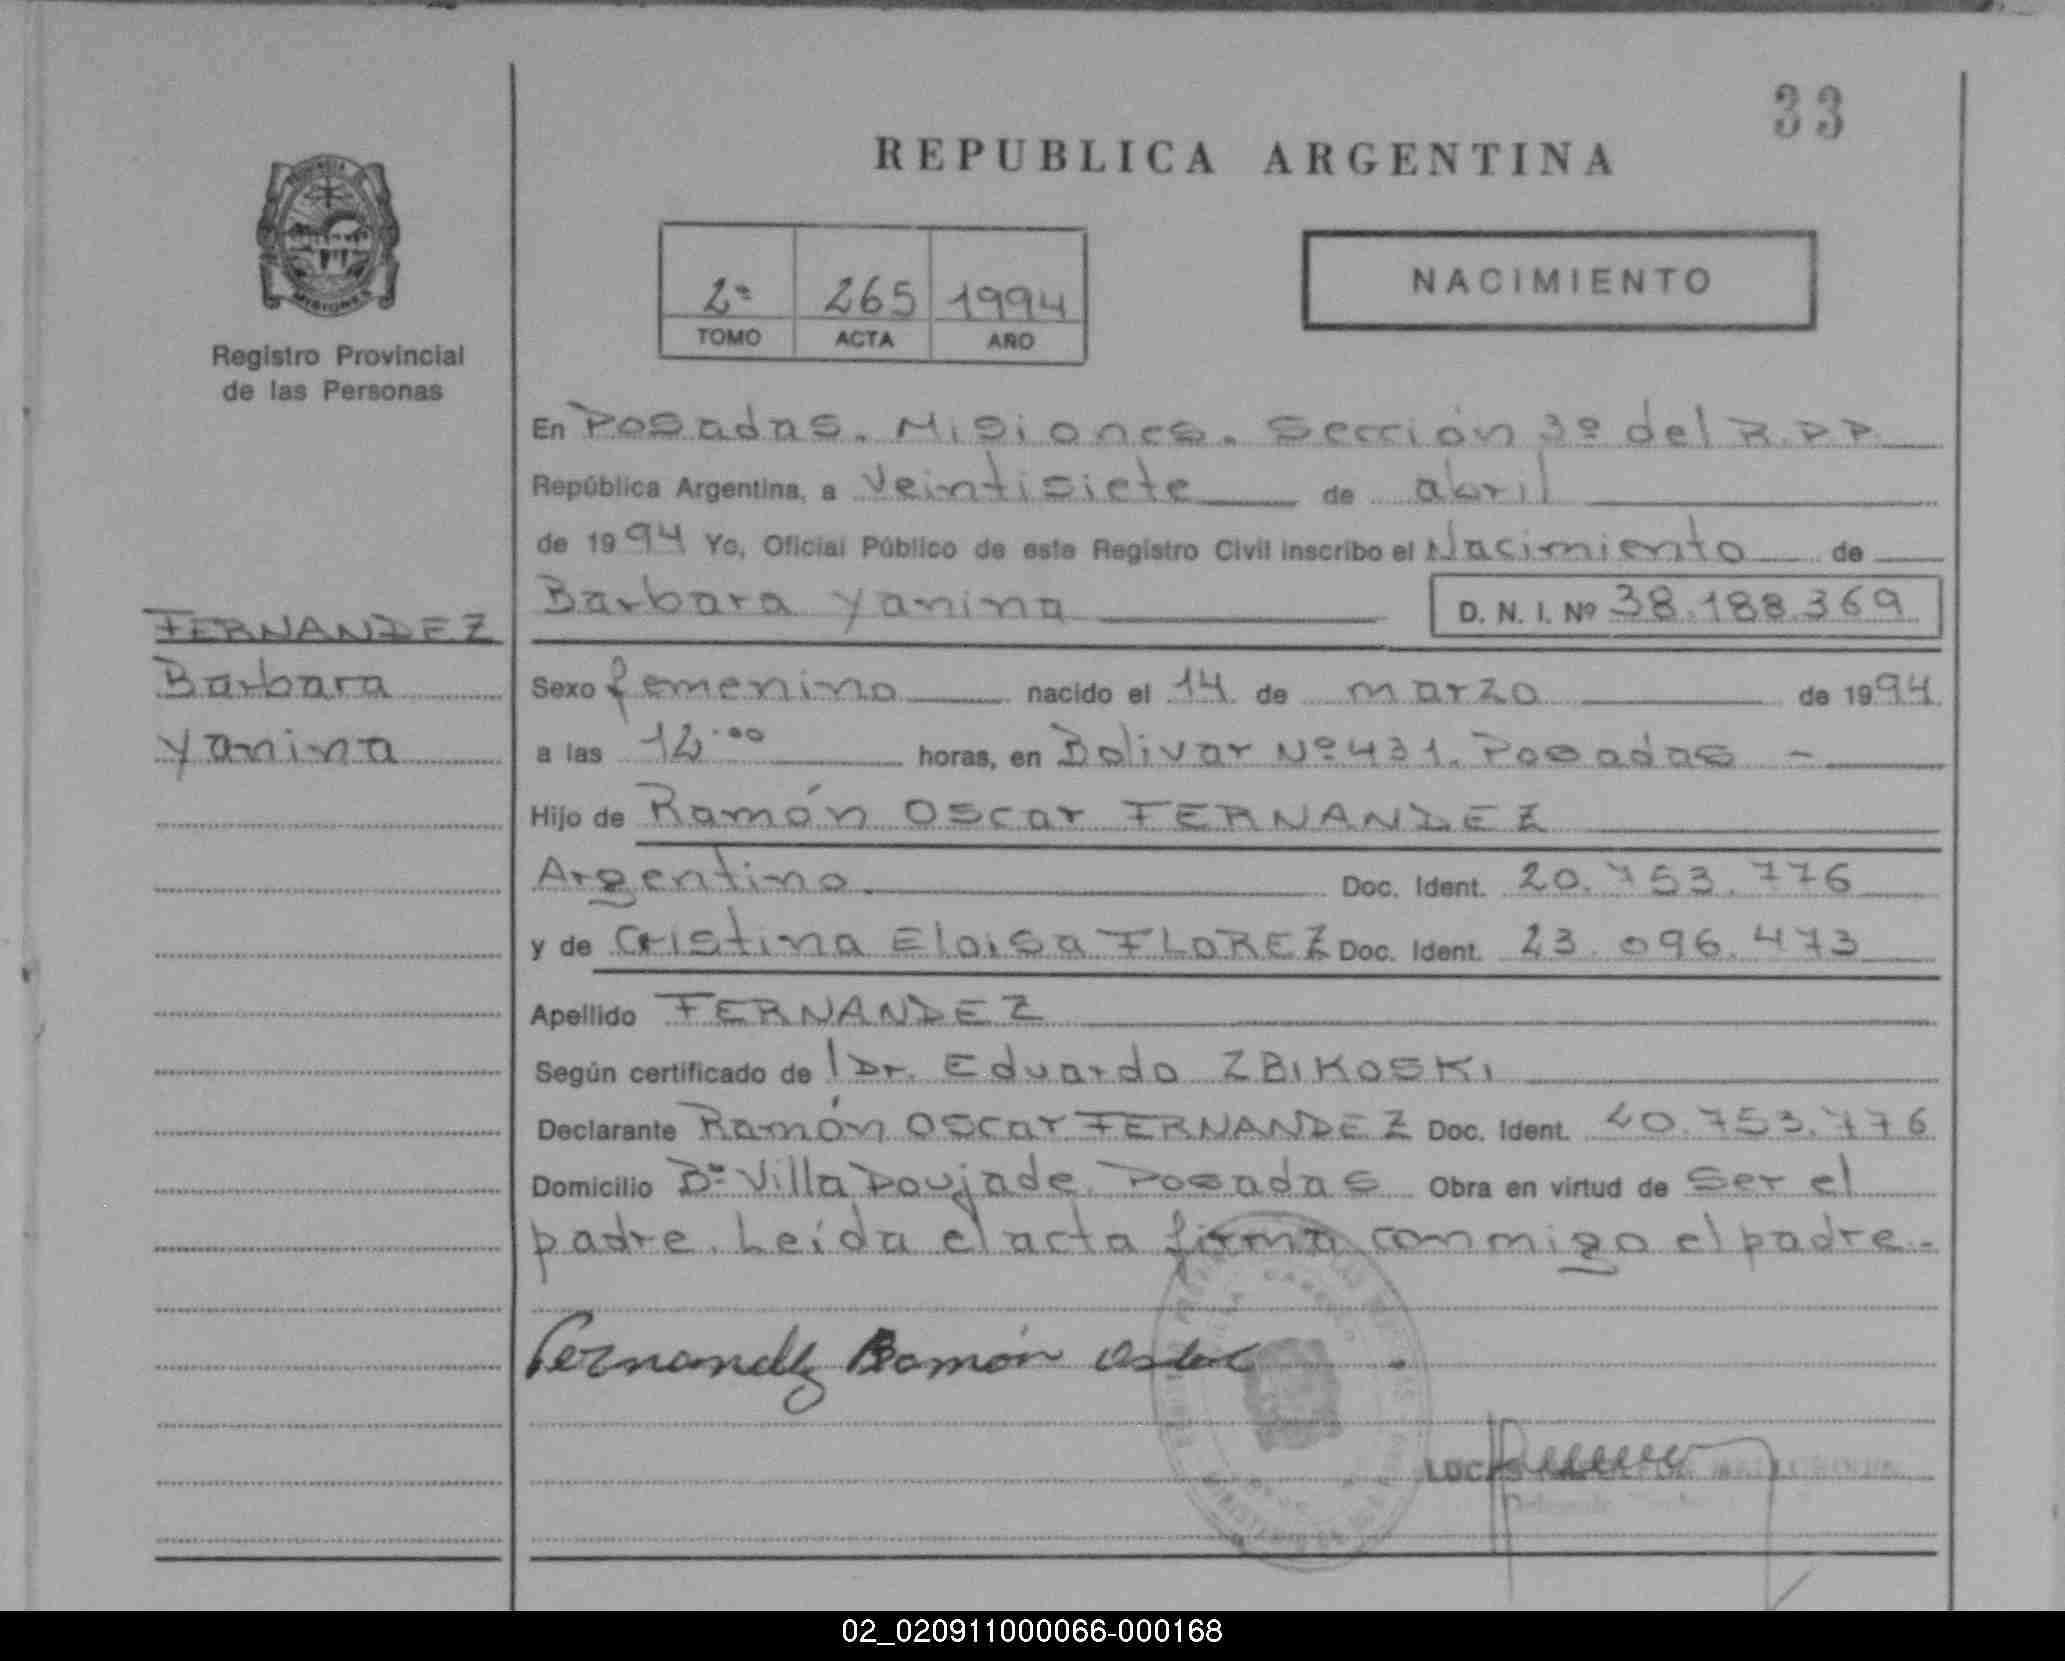 33
REPUBLICA ARGENTINA
NACIMIENTO
2º 265 1994
TOMO ACTA AÑO
MISIONES
Registro Provincial
de las Personas
FERNANDEZ
Barbara
Yanina
En Posadas. Misiones. Sección 3º del R.P.P.
República Argentina, a Veintisiete de abril
de 1994 Yo, Oficial Público de este Registro Civil inscribo el Nacimiento de
Barbara Yanina D. N. I. Nº 38.188.369
Sexo femenino nacido el 14 de marzo de 1994
a las 12.00 horas, en Bolivar Nº 431. Posadas -
Hijo de Ramón Oscar FERNANDEZ
Argentino. Doc. Ident. 20.753.776
y de Cristina Eloisa FLOREZ Doc. Ident. 23.096.473
Apellido FERNANDEZ
Según certificado de l Dr. Eduardo ZBIKOSKI
Declarante Ramón Oscar FERNANDEZ Doc. Ident. 20.753.776
Domicilio Bº Villa Poujade. Posadas Obra en virtud de Ser el
padre. Leída el acta firma conmigo el padre.-
Fernandez Ramón Oscar
LUCAS
02_020911000066-000168